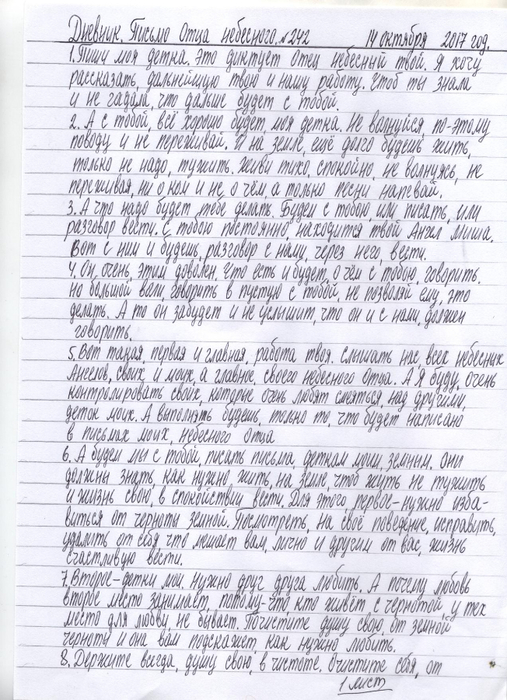 Дневник. Письмо Отца небесного. №242 14 октября 2017 год.
1. Пиши моя детка. Это диктует Отец небесный твой. Я хочу
рассказать, дальнейшую твою и нашу работу. Чтоб ты знала
и не гадала, что дальше будет с тобой.
2. А с тобой, всё хорошо будет, моя детка. Не волнуйся, по-этому
поводу и не переживай. И на земле, ещё долго будешь жить,
только не надо, тужить. Живи тихо, спокойно, не волнуясь, не
переживая, ни о ком и не, о чём, а только песни напевай.
3. А что надо будет тебе делать. Будем с тобою или писать, или
разговор вести. С тобою постоянно, находится твой Ангел Миша.
Вот с ним и будешь, разговор с нами, через него, вести.
4. Он, очень, этим доволен. Что есть и будет, о чём с тобою, говорить.
Но большой вам, говорить в пустую с тобой, не позволяй ему, это
делать. А то он забудет и не услышит, что он и с нами, должен
говорить.
5. Вот такая, первая и главная, работа твоя. Слышать нас, всех небесных
Ангелов, своих и моих, а главное, своего небесного Отца. А Я буду, очень
контролировать своих, которые очень любят смеяться, над другими,
деток моих. А выполнять будешь, только то, что будет написано
в письмах моих, небесного Отца
6. А будем мы с тобой, писать письма, деткам моим, земным. Они
должны знать, как нужно, жить, на земле, чтоб жить не тужить
и жизнь свою, в спокойствии вести. Для этого, первое- нужно изба-
виться от черноты земной. Посмотреть, на своё поведение, исправить,
удалить от себя что мешает вам, лично и другим от вас, жизнь
счастливую вести.
7. Второе- детки мои. Нужно друг друга любить. А почему любовь
второе место занимает, потому-что, кто живёт с чернотой, у тех
место для любви, не бывает. Почистите душу свою, от земной
черноты и она вам подскажет, как нужно любить.
8. Держите всегда, душу свою, в чистоте. Очистите себя, от
1 лист